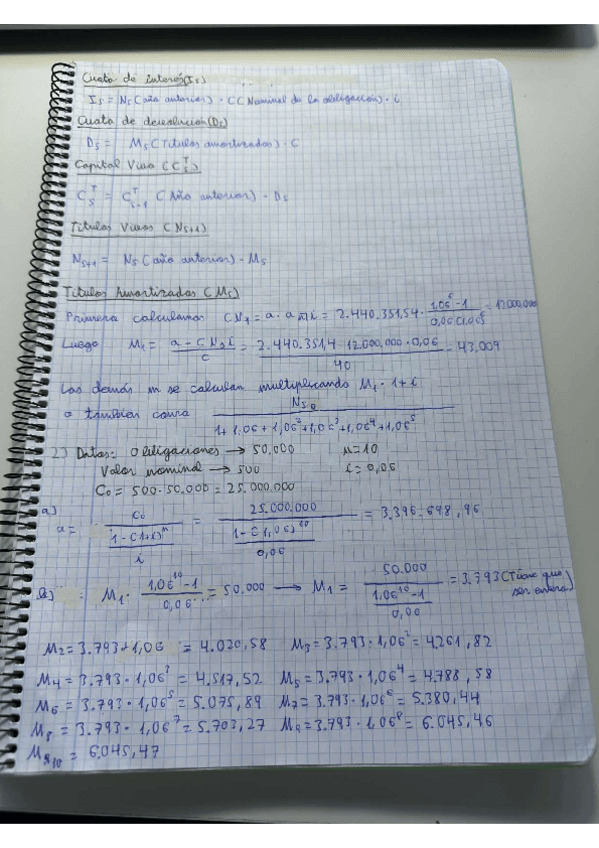 Cuota de interés(Is)
Is = Ns (año anterior) · C(Nominal de la obligación) · i
Cuota de devolución(Ds)
Ds = Ms(Títulos amortizados) · C
Capital Vivo (C_s^T)
C_s^T = C_{s-1}^T (Año anterior) - Ds
Títulos Vivos (Ns+1)
Ns+1 = Ns (año anterior) - Ms
Títulos Amortizados (Ms)
Primera calculamos CN1 = a · a n┐i = 2.440.351,54 · (1,06^5 - 1)/(0,06 (1,06)^5) = 12.000.000
Luego M1 = (a - C N1 i)/C = (2.440.351,4 - 12.000.000 · 0,06)/40 = 43.009
Los demás m se calculan multiplicando M1 · 1+i
o también como Ns0/(1 + 1,06 + 1,06^2 + 1,06^3 + 1,06^4 + 1,06^5)
2) Datos: Obligaciones → 50.000 n=10
Valor nominal → 500 i = 0,06
C0 = 500 · 50.000 = 25.000.000
a) a = C0/((1-(1+i)^n)/i) = 25.000.000/((1-(1,06)^10)/0,06) = 3.396.698,96
b) M1 · (1,06^10 - 1)/0,06 = 50.000 → M1 = 50.000/((1,06^10 - 1)/0,06) = 3.793 (Tiene que ser entero)
M2 = 3.793 · 1,06 = 4.020,58 M3 = 3.793 · 1,06^2 = 4.261,82
M4 = 3.793 · 1,06^3 = 4.517,52 M5 = 3.793 · 1,06^4 = 4.788,58
M6 = 3.793 · 1,06^5 = 5.075,89 M7 = 3.793 · 1,06^6 = 5.380,44
M8 = 3.793 · 1,06^7 = 5.703,27 M9 = 3.793 · 1,06^8 = 6.045,46
M10 = 6.045,47